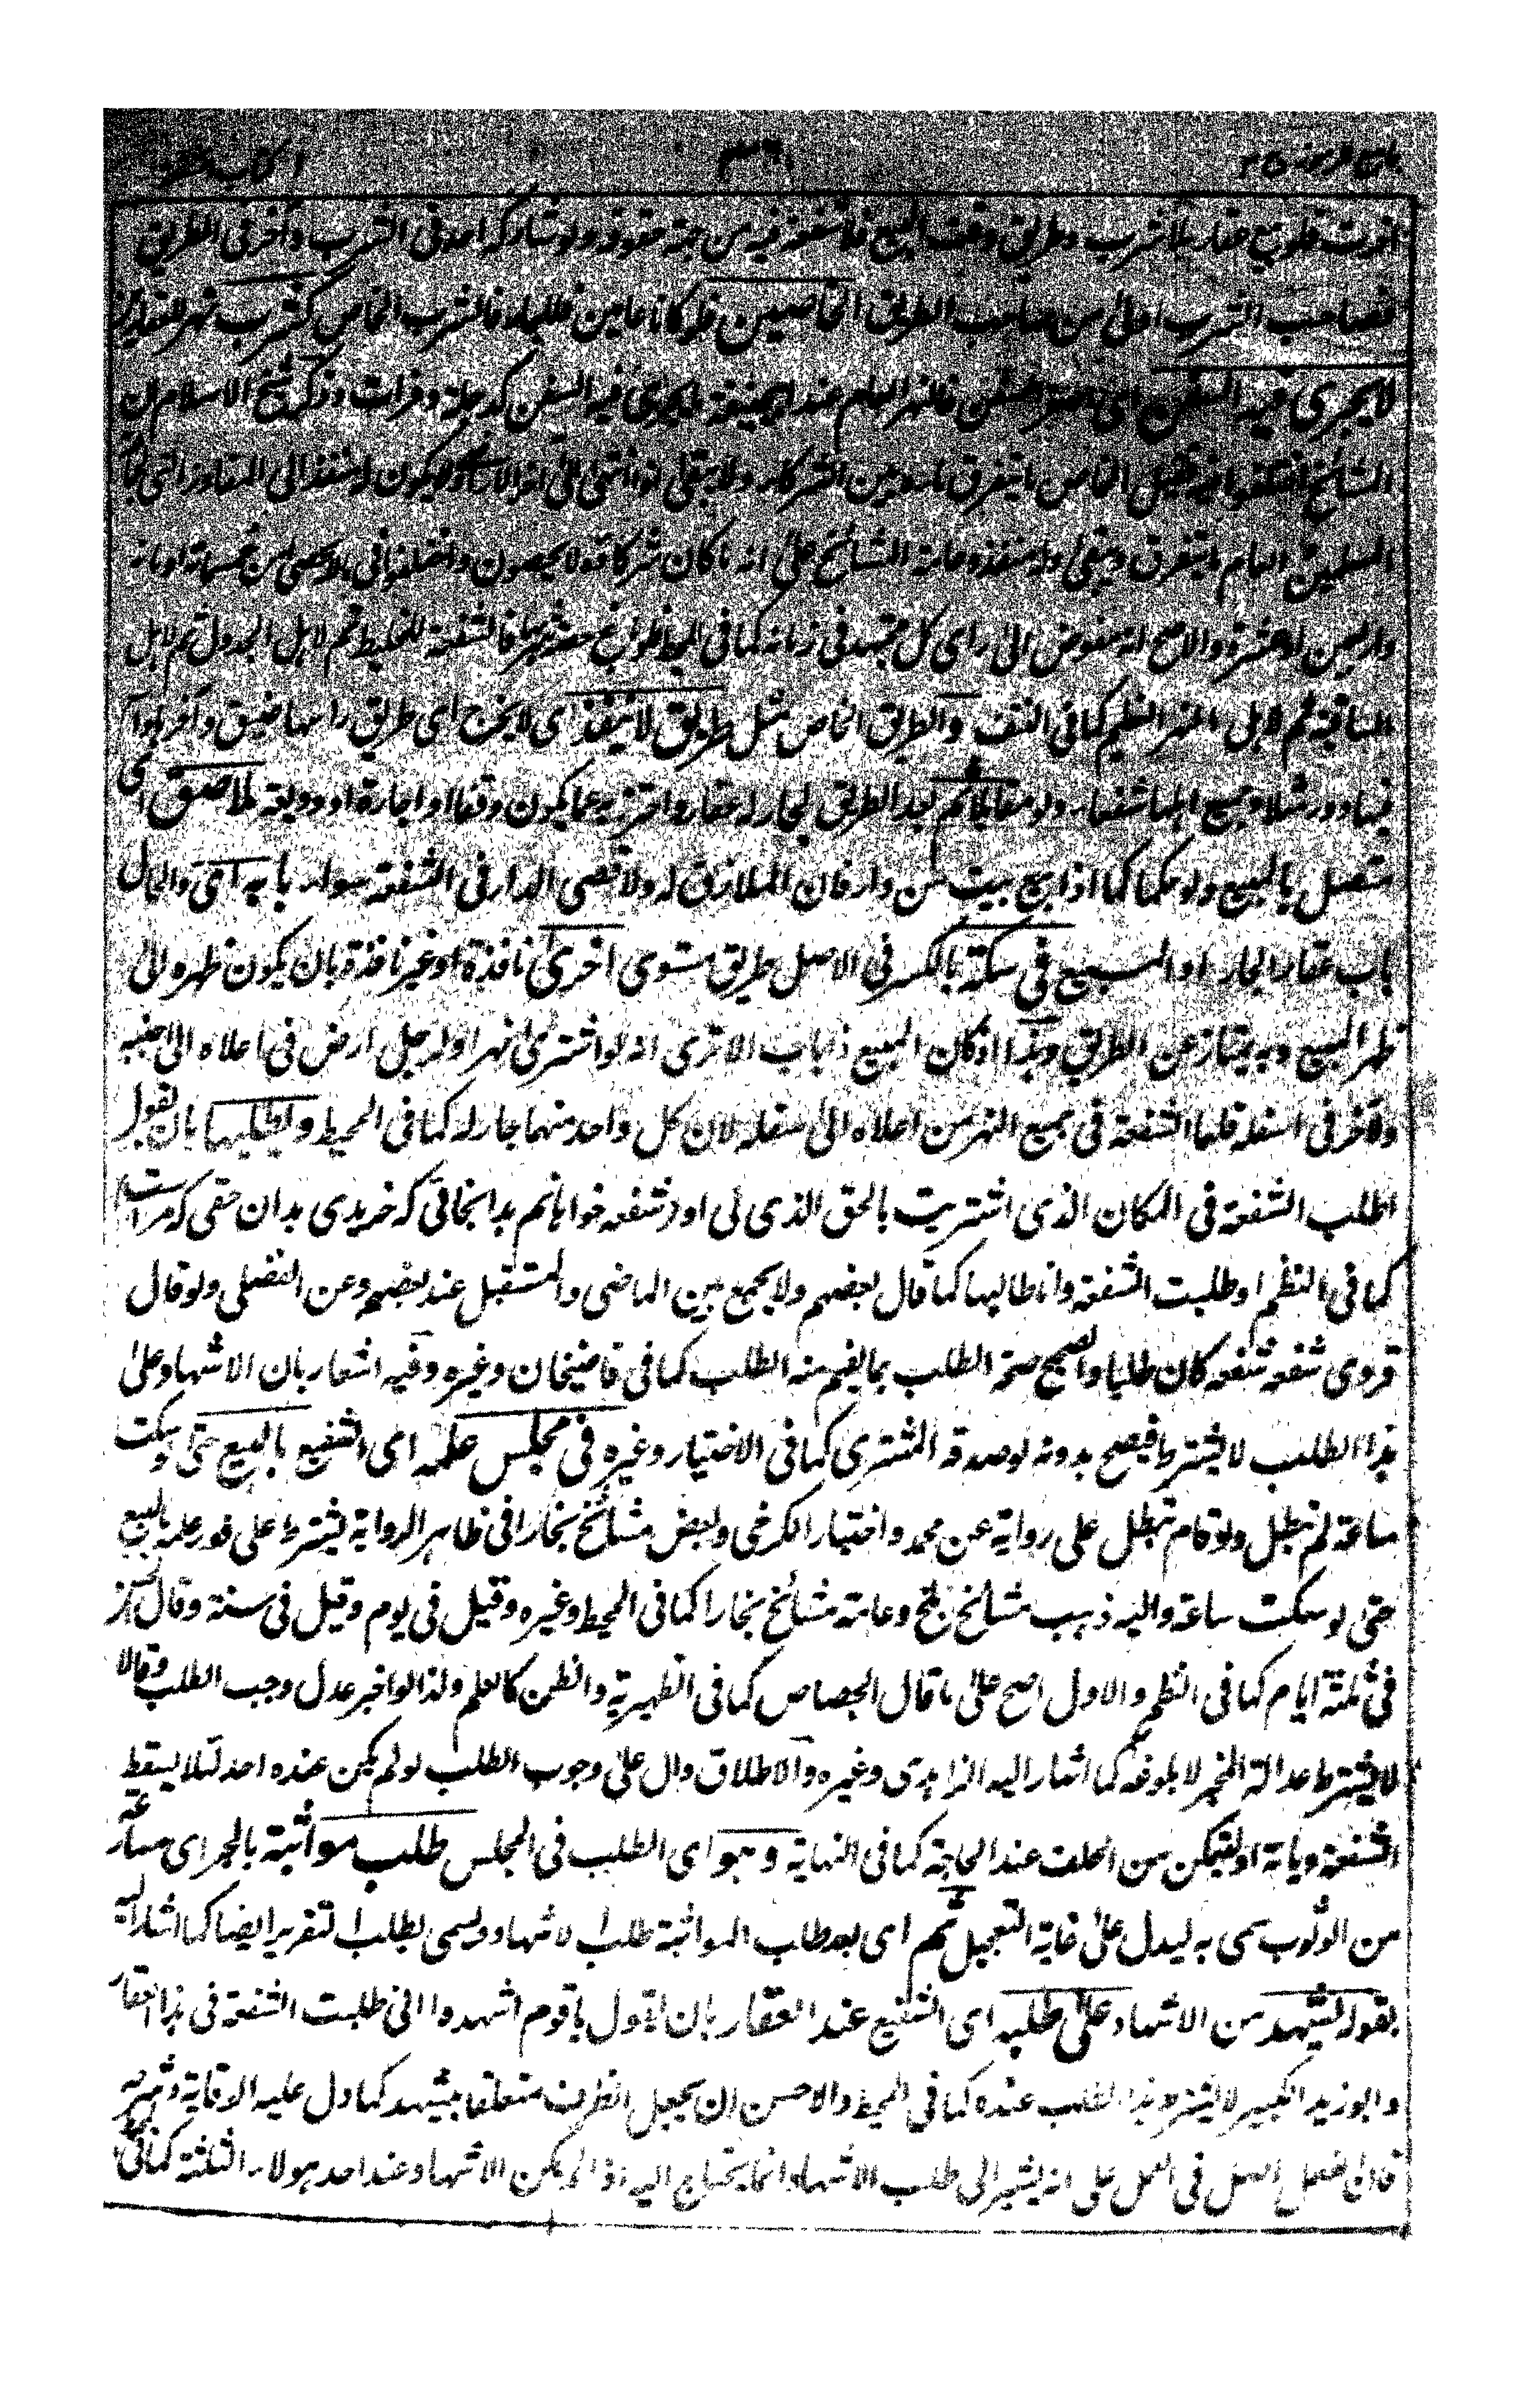 جامع الرموز ج ٣ ٣٦١ كتاب الشفعة
افرزت فلو بيع عقار بلا شرب وطريق وقت البيع فلا شفعة فيه من جهة حقوقه ولو شاركه احد فى الشرب وآخر فى الطريق
فصاحب الشرب اولى من صاحب الطريق الخاصين فلو كانا عامين فالشرب الخاص كشرب نهر
لا يجرى فيه السفن اى فالنهر العام عند ابيحنيفة ما يجرى فيه السفن كدجلة وفرات وذكر شيخ الاسلام ان
المشائخ اختلفوا فيه فقيل الخاص ما يتفرق ماءه بين الشركاء ولا يبقى اذا انتهى الى آخر الاراضى ولا يكون له منفذ الى المفاوز التى لجماعة
المسلمين والعام ما يتفرق ويبقى وله منفذ وعامة المشائخ على انه ما كان شركاؤه لا يحصون واختلفوا فى ما لا يحصى من خمسمائة او مائة
واربعين او عشرة والاصح انه مفوض الى راى كل مجتهد فى زمانه كما فى المحيط فلو بيع حصته فالشفعة للخليط ثم لاهل الجدول ثم لاهل
الساقية ثم لاهل النهر العظيم كما فى النتف والطريق الخاص مثل طريق لا ينفذ اى لا يخرج اى طريق راسها ضيق وآخر
فيها دور شلا وبيع احدها شفعاء ولو مقابلا ثم بعد الطريق لجار له عقار واحترز به عما يكون وقفا او اجارة او وديعة ملاصق اى
متصل بالمبيع ولو حكما كما اذا بيع بيت من دار فان الملازق له ولاقصى الدار فى الشفعة سواء بابه اى والحال
باب عقار الجار او المبيع فى سكة بالكسر فى الاصل طريق مستوى اخرى نافذة او غير نافذة بان يكون ظهره الى
ظهر المبيع وبه يمتاز عن الطريق وهذا اذا كان المبيع ذا باب الا ترى انه لو اشترى نهرا ولرجل ارض فى اعلاه الى جنبه
ولآخر فى اسفله فلهما الشفعة فى جميع النهر من اعلاه الى اسفله لان كل واحد منهما جار له كما فى المحيط ويطلبها بان يقول
اطلب الشفعة فى المكان الذى اشتريت بالحق الذى لى او شفعه خواهانم بدانجائى كه خريدى بدان حقى كه مراست
كما فى النظم او طلبت الشفعة وانا طالبها كما قال بعضهم ولا يجمع بين الماضى والمستقبل عند بعضهم وعن الفضلى ولو قال
قروى شفعه شفعه كان طلبا والصحيح صحة الطلب بما يفهم منه الطلب كما فى قاضيخان وغيره وفيه اشعار بان الاشهاد على
هذا الطلب لا يشترط فيصح بدونه لو صدقه المشترى كما فى الاختيار وغيره فى مجلس علمه اى الشفيع بالبيع حتى لو سكت
ساعة لم تبطل ولو قام تبطل على رواية عن محمد واختيار الكرخى وبعض مشائخ بخارا فى ظاهر الرواية يشترط على فور علمه بالبيع
حتى لو سكت ساعة واليه ذهب مشائخ بلخ وعامة مشائخ بخارا كما فى المحيط وغيره وقيل فى يوم وقيل فى سنة وقال
فى ثلثة ايام كما فى النظم والاول اصح على ما قال الجصاص كما فى الظهيرية والظن كالعلم ولذا لو اخبر عدل وجب الطلب وقالا
لا يشترط عدالة المخبر لا بلوغه كما اشار اليه الزاهدى وغيره والاطلاق دال على وجوب الطلب لو لم يكن عنده احد لئلا يسقط
الشفعة ديانة او ليتمكن من الحلف عند الحاجة كما فى النهاية وهو اى الطلب فى المجلس طلب مواثبة بالجر اى مسارعة
من الوثوب سمى به ليدل على غاية التعجيل ثم اى بعد طلب المواثبة طلب الاشهاد ويسمى بطلب التقرير ايضا كما اشار اليه
بقوله ليشهد من الاشهاد على طلبه اى الشفيع عند العقار بان يقول يا قوم اشهدوا انى طلبت الشفعة فى هذا العقار
وابو زيد الكبير لا يشترط هذا الطلب عنده كما فى المحيط والاحسن ان يجعل الظرف متعلقا بيشهد كما دل عليه الوقاية
فالى فعمل العمل فى العمل على انه يشير الى طلب الاشهاد وانما يحتاج اليه اذا لم يكن الاشهاد عند احد هولاء الثلثة كما فى